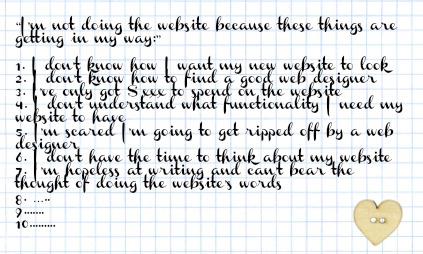 "I'm not doing the website because these things are
getting in my way:"
1. I don't know how I want my new website to look
2. I don't know how to find a good web designer
3. I've only got $xxx to spend on the website
4. I don't understand what functionality I need my
website to have
5. I'm scared I'm going to get ripped off by a web
designer
6. I don't have the time to think about my website
7. I'm hopeless at writing and can't bear the
thought of doing the website's words
8. .....
9.......
10.........